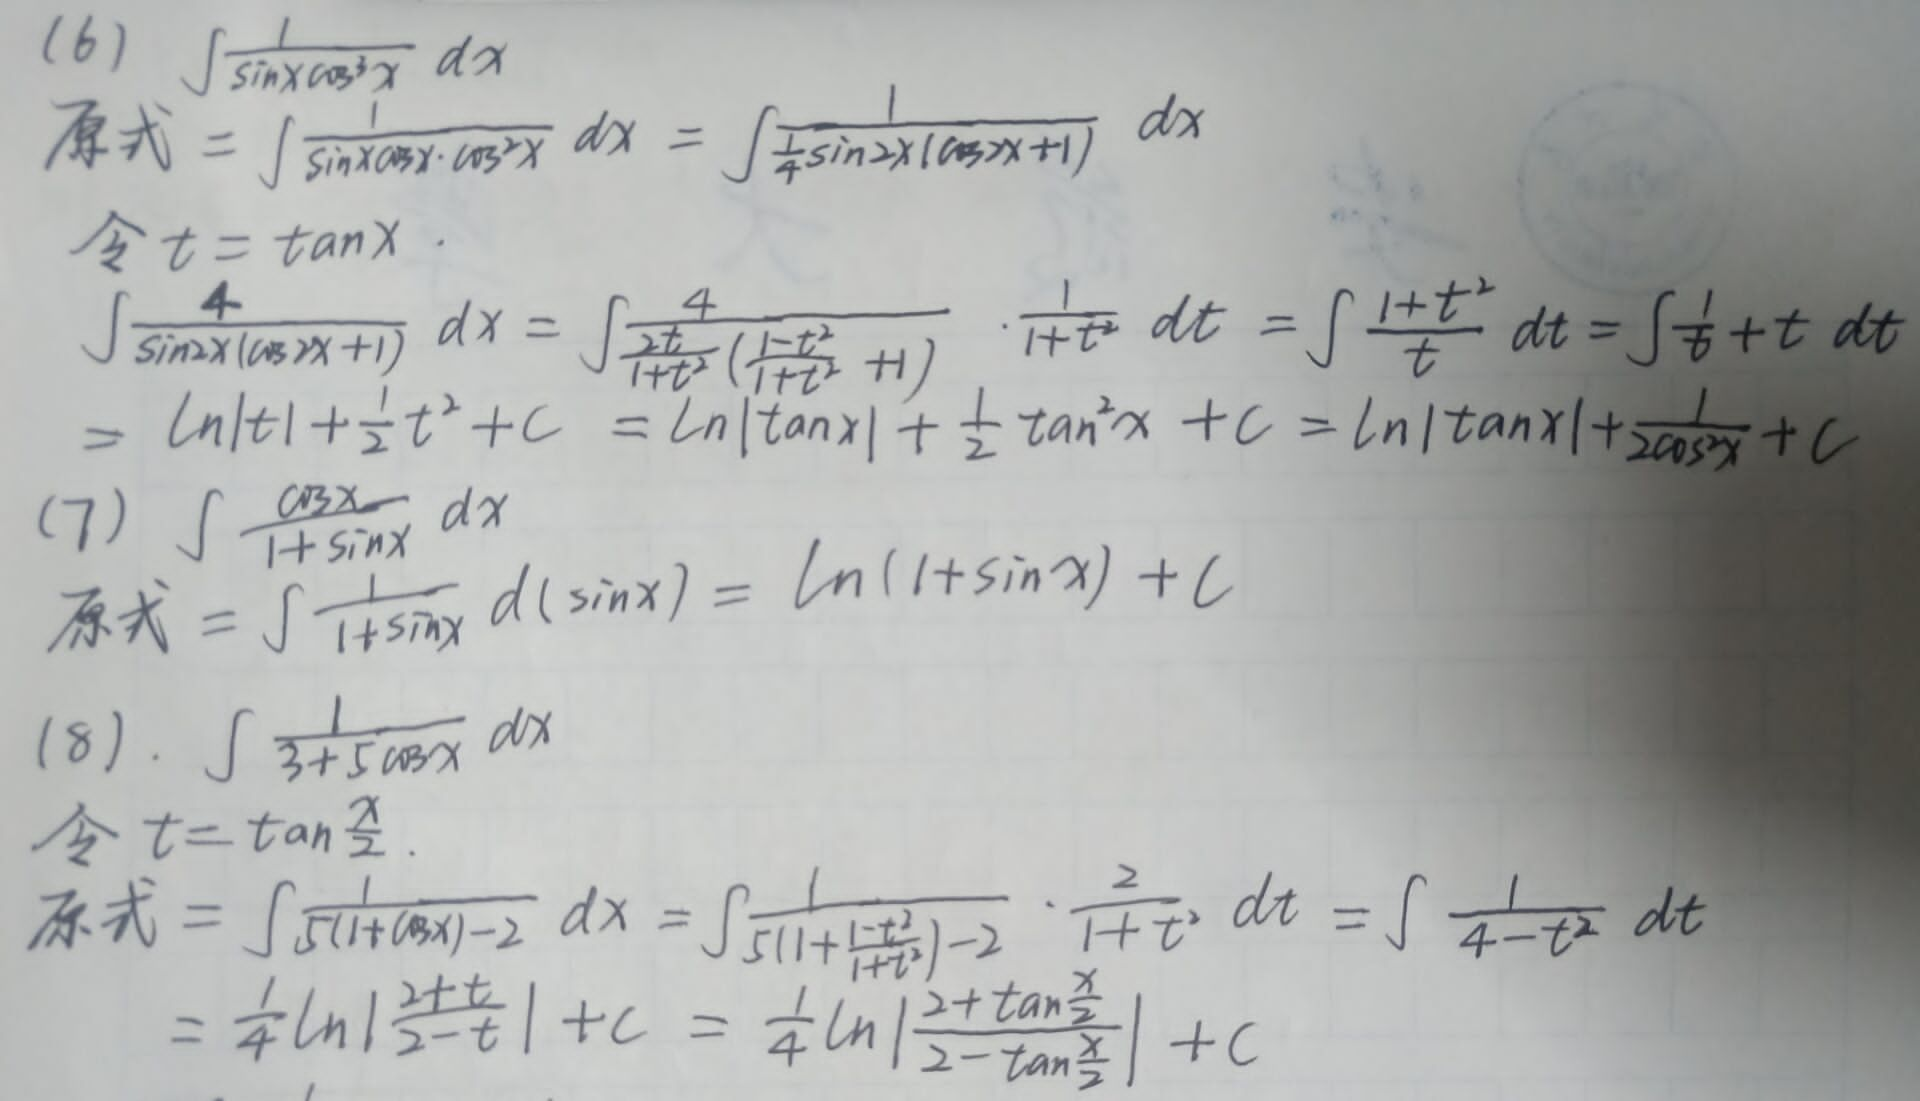 (6) ∫ 1/(sinxcos³x) dx
原式 = ∫ 1/(sinxcosx·cos²x) dx = ∫ 1/(1/4 sin2x(cos2x+1)) dx
令 t = tanx.
∫ 4/(sin2x(cos2x+1)) dx = ∫ 4/(2t/(1+t²) ((1-t²)/(1+t²) +1)) · 1/(1+t²) dt = ∫ (1+t²)/t dt = ∫ 1/t + t dt
= ln|t| + 1/2 t² + C = ln|tanx| + 1/2 tan²x + C = ln|tanx| + 1/(2cos²x) + C
(7) ∫ cosx/(1+sinx) dx
原式 = ∫ 1/(1+sinx) d(sinx) = ln(1+sinx) + C
(8). ∫ 1/(3+5cosx) dx
令 t = tan x/2.
原式 = ∫ 1/(5(1+cosx)-2) dx = ∫ 1/(5(1+(1-t²)/(1+t²))-2) · 2/(1+t²) dt = ∫ 1/(4-t²) dt
= 1/4 ln|(2+t)/(2-t)| + C = 1/4 ln|(2+tan x/2)/(2-tan x/2)| + C